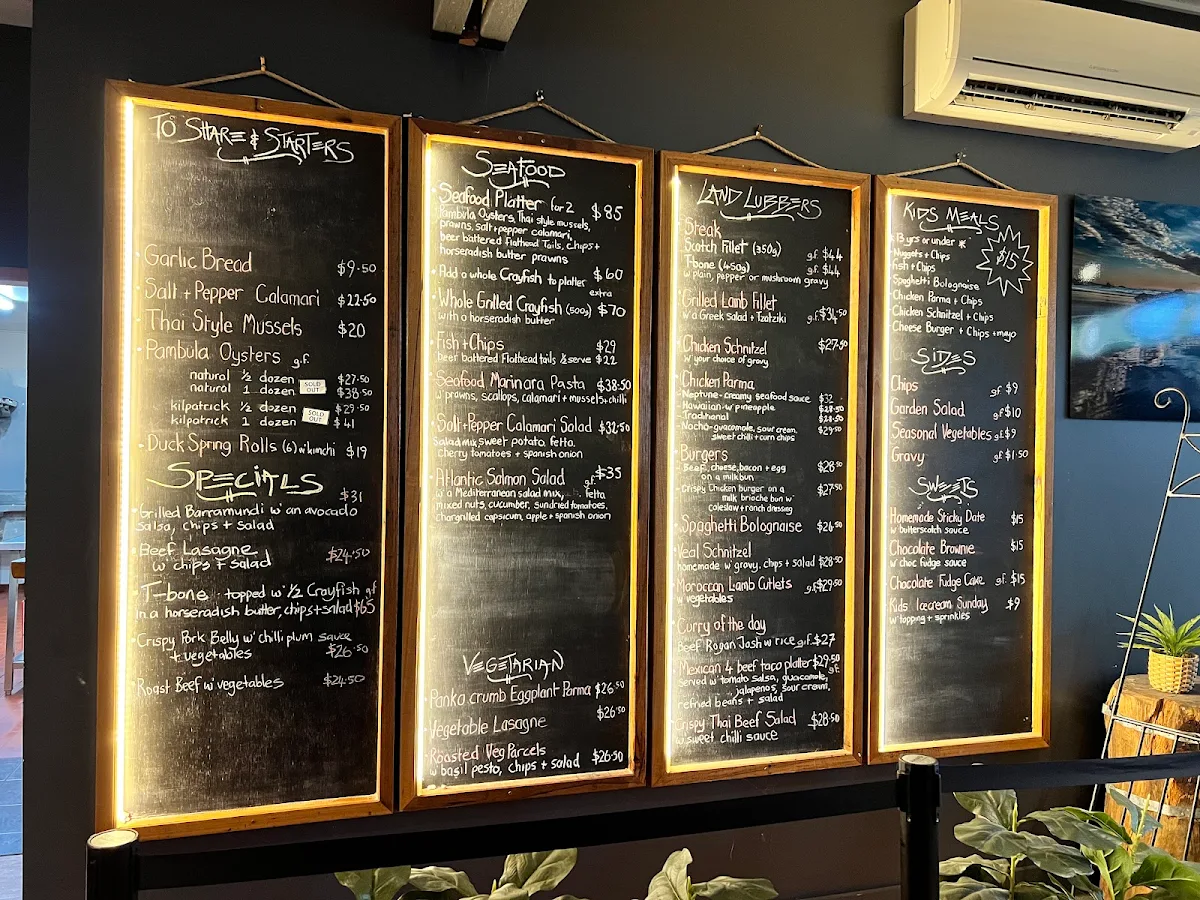 TO SHARE & STARTERS
Garlic Bread $9.50
Salt + Pepper Calamari $22.50
Thai Style Mussels $20
Pambula Oysters g.f.
natural ½ dozen SOLD OUT $27.50
natural 1 dozen $38.50
kilpatrick ½ dozen SOLD OUT $29.50
kilpatrick 1 dozen $41
Duck Spring Rolls (6) w kimchi $19
SPECIALS
$31
Grilled Barramundi w' an avocado
salsa, chips + salad
Beef Lasagne $24.50
w' chips + salad
T-bone topped w' ½ Crayfish gf
in a horseradish butter, chips + salad $65
Crispy Pork Belly w' chilli plum sauce
+ vegetables $26.50
Roast Beef w' vegetables $24.50
SEAFOOD
Seafood Platter for 2 $85
Pambula Oysters, Thai style mussels,
prawns, salt + pepper calamari,
beer battered Flathead Tails, chips +
horseradish butter prawns
Add a whole Crayfish to platter $60
extra
Whole Grilled Crayfish (500g) $70
with a horseradish butter
Fish + Chips $29
beer battered Flathead tails ½ serve $22
Seafood Marinara Pasta $38.50
w' prawns, scallops, calamari + mussels, chilli
Salt + Pepper Calamari Salad $32.50
salad mix, sweet potato, fetta,
cherry tomatoes + spanish onion
Atlantic Salmon Salad gf $35
w a Mediterranean salad mix, fetta
mixed nuts, cucumber, sundried tomatoes,
chargrilled capsicum, apple + spanish onion
VEGETARIAN
Panko crumb Eggplant Parma $26.50
Vegetable Lasagne $26.50
Roasted Veg Parcels
w' basil pesto, chips + salad $26.50
LAND LUBBERS
Steak
Scotch Fillet (350g) g.f $44
T-bone (450g) g.f. $44
w plain, pepper or mushroom gravy
Grilled Lamb Fillet
w a Greek Salad + Tzatziki g.f. $34.50
Chicken Schnitzel $27.50
w your choice of gravy
Chicken Parma
- Neptune - creamy seafood sauce $32
- Hawaiian - w' pineapple $28.50
- Traditional $28.50
- Nacho - guacamole, sour cream, $29.50
sweet chilli + corn chips
Burgers
- Beef, cheese, bacon + egg $28.50
on a milk bun
- Crispy Chicken burger on a $27.50
milk brioche bun w'
coleslaw + ranch dressing
Spaghetti Bolognaise $26.50
Veal Schnitzel
homemade w' gravy, chips + salad $28.50
Moroccan Lamb Cutlets g.f. $29.50
w vegetables
Curry of the day
Beef Rogan Josh w rice g.f. $27
Mexican 4 beef taco platter $29.50
served w' tomato salsa, guacamole, gf
jalapenos, sour cream,
refried beans + salad
Crispy Thai Beef Salad $28.50
w sweet chilli sauce
KIDS MEALS
* 13 yrs or under * $15
Nuggets + Chips
Fish + Chips
Spaghetti Bolognaise
Chicken Parma + Chips
Chicken Schnitzel + Chips
Cheese Burger + Chips + mayo
SIDES
Chips gf $9
Garden Salad gf $10
Seasonal Vegetables gf $9
Gravy gf $1.50
SWEETS
Homemade Sticky Date $15
w butterscotch sauce
Chocolate Brownie $15
w choc fudge sauce
Chocolate Fudge Cake gf. $15
Kids Icecream Sunday $9
w topping + sprinkles